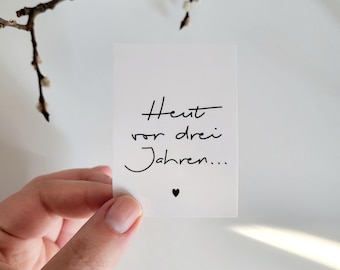 Heut
vor drei
Jahren...
♥